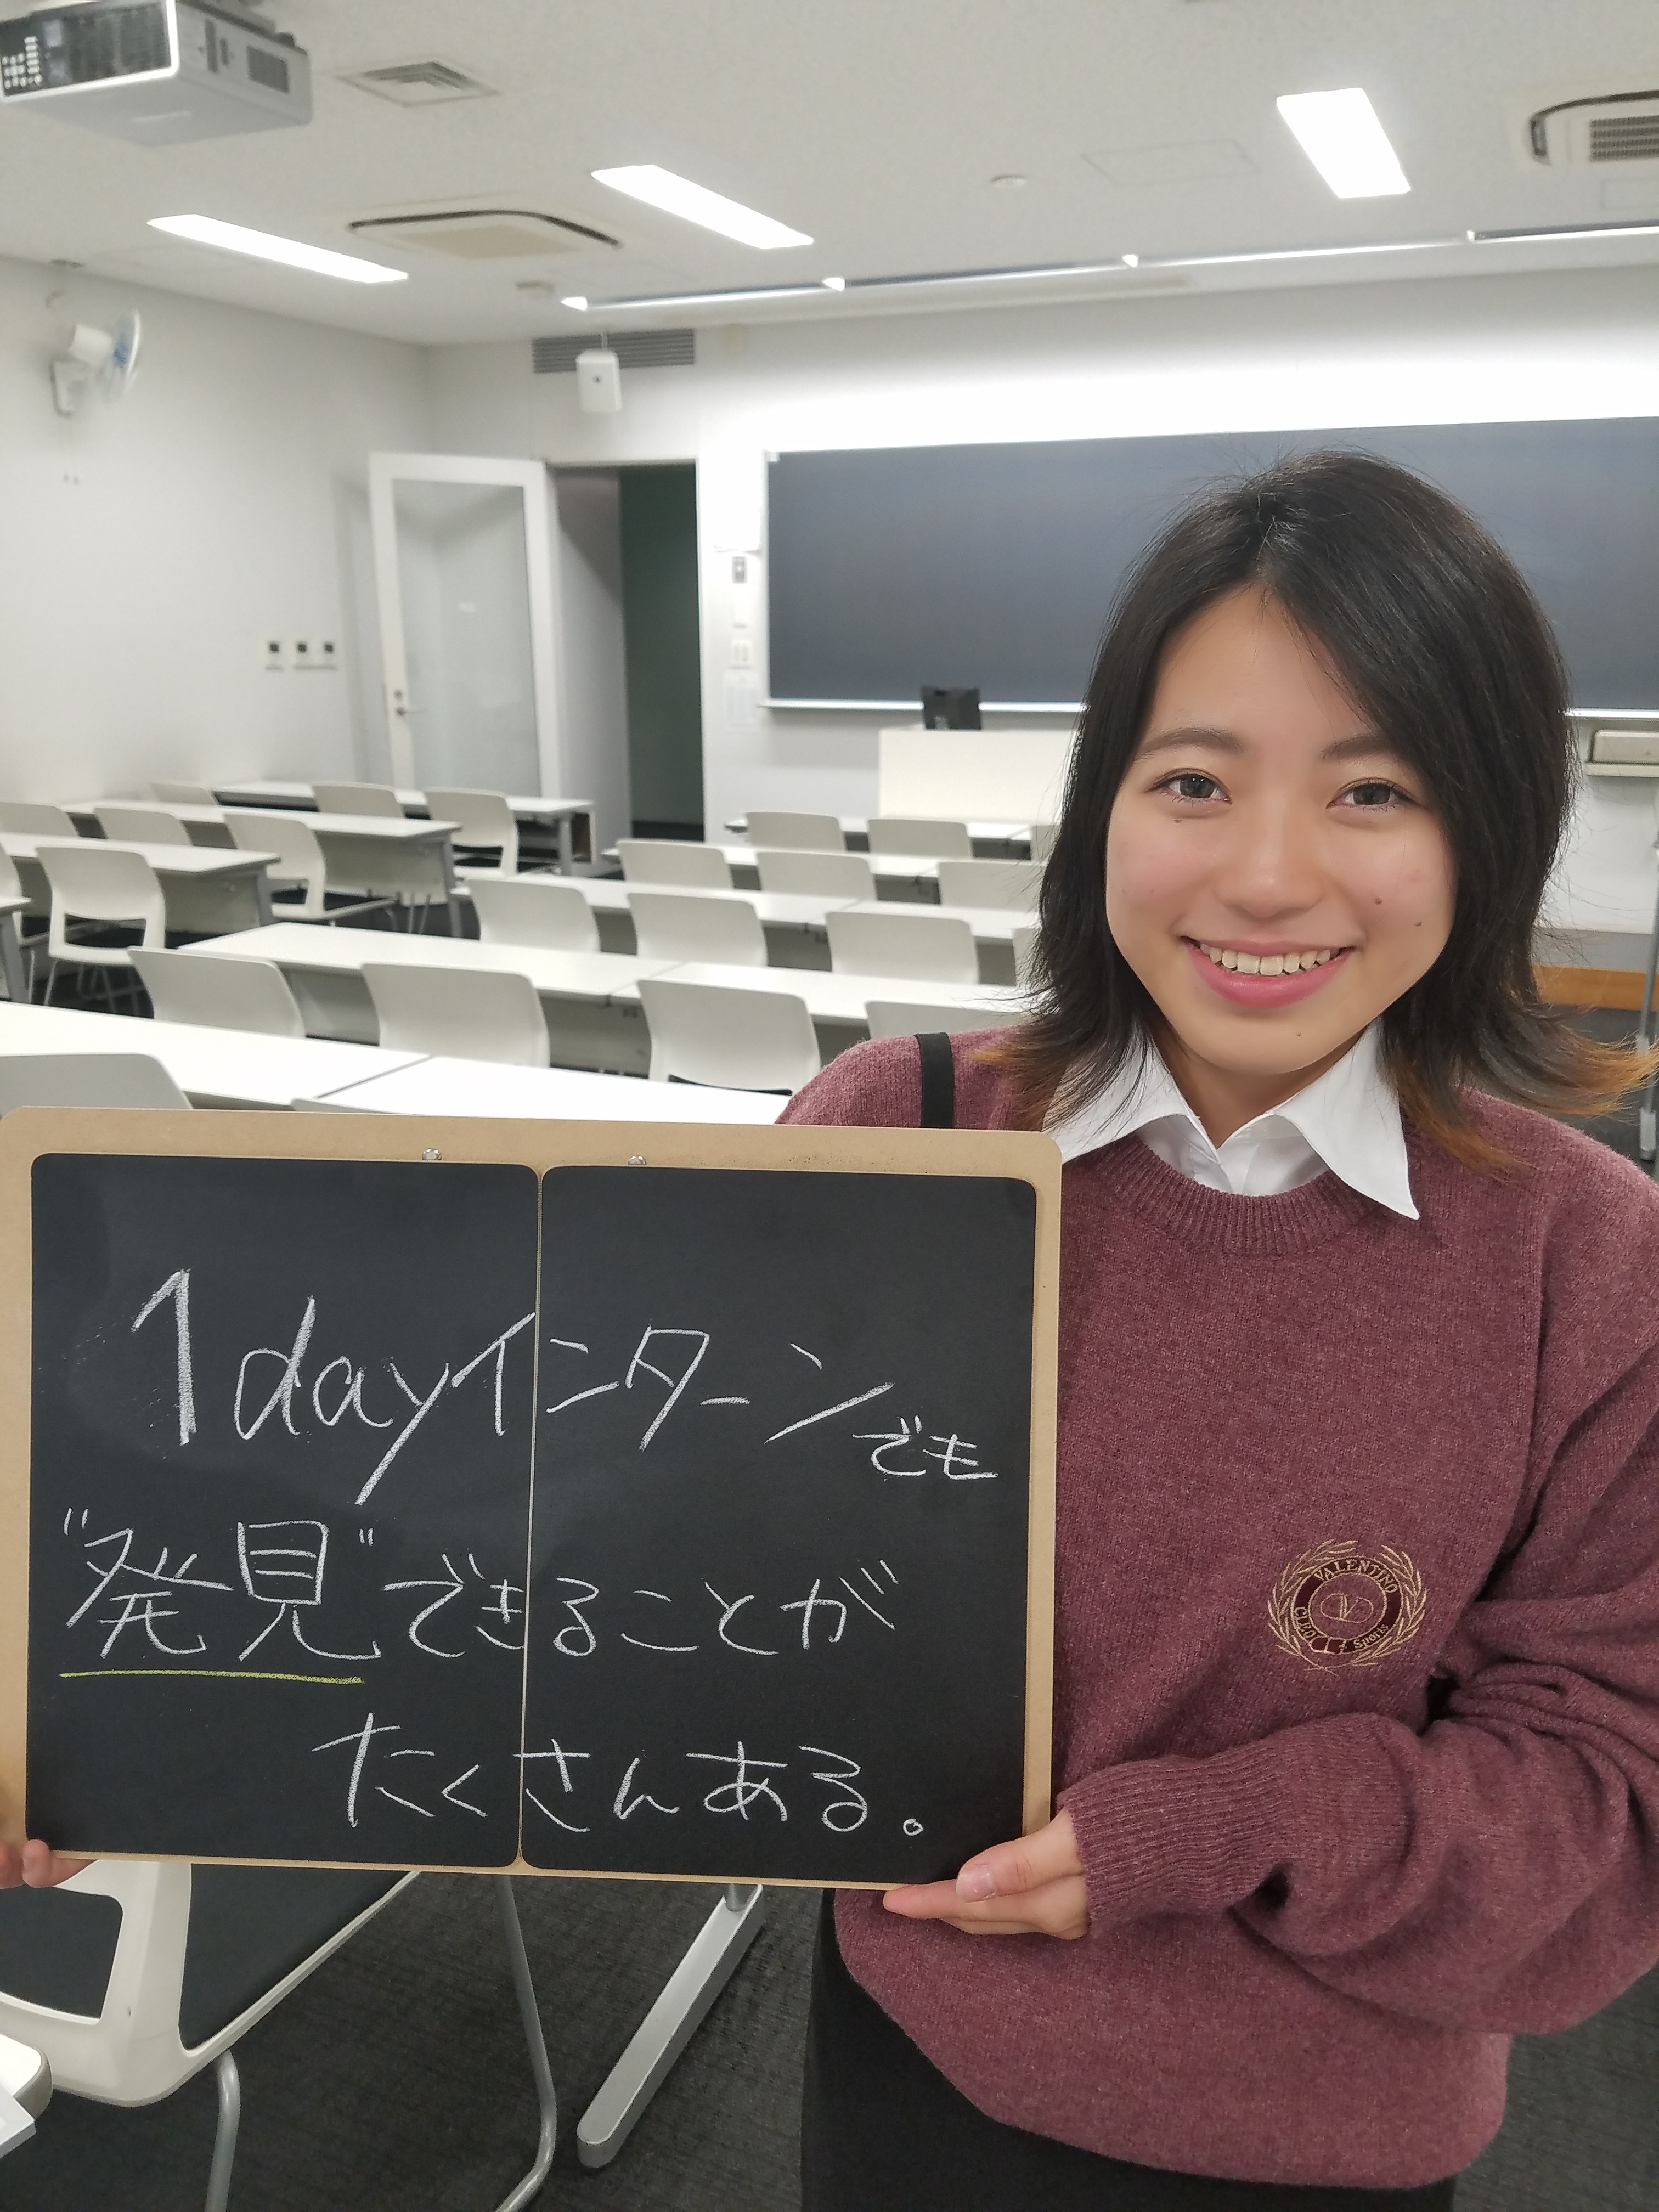 1dayインターンでも
"発見"できることが
たくさんある。
VALENTINO
CLEO
SPORTS